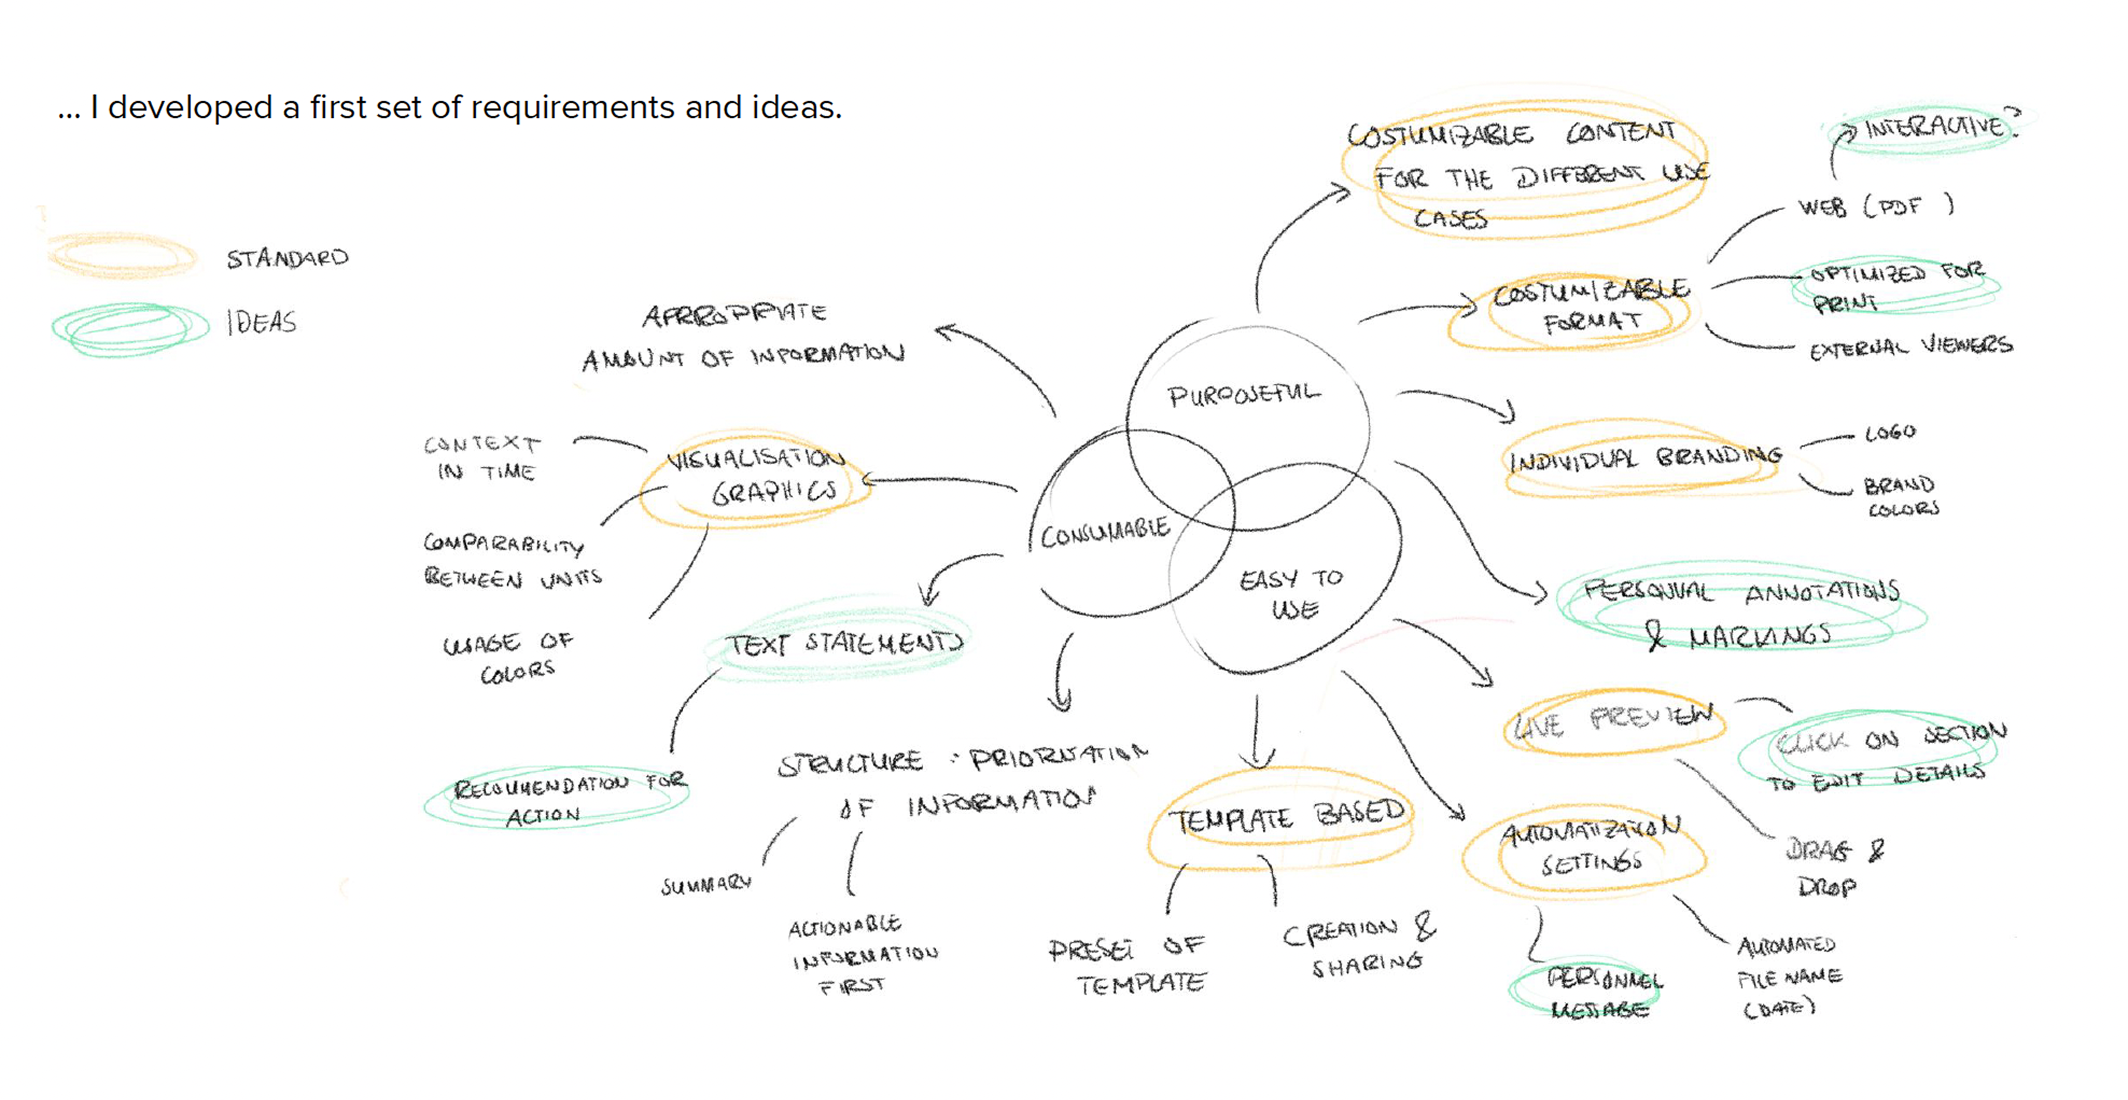 ... I developed a first set of requirements and ideas.
STANDARD
IDEAS
PURPOSEFUL
CONSUMABLE
EASY TO
USE
COSTUMIZABLE CONTENT
FOR THE DIFFERENT USE
CASES
COSTUMIZABLE
FORMAT
INTERACTIVE?
WEB (PDF )
OPTIMIZED FOR
PRINT
EXTERNAL VIEWERS
INDIVIDUAL BRANDING
LOGO
BRAND
COLORS
PERSONAL ANNOTATIONS
& MARKINGS
LIVE PREVIEW
CLICK ON SECTION
TO EDIT DETAILS
DRAG &
DROP
AUTOMATIZATION
SETTINGS
PERSONNEL
MESSAGE
AUTOMATED
FILE NAME
(DATE)
TEMPLATE BASED
PRESET OF
TEMPLATE
CREATION &
SHARING
APPROPRIATE
AMOUNT OF INFORMATION
VISUALISATION
GRAPHICS
CONTEXT
IN TIME
COMPARABILITY
BETWEEN UNITS
USAGE OF
COLORS
TEXT STATEMENTS
RECOMMENDATION FOR
ACTION
STRUCTURE + PRIORISATION
OF INFORMATION
SUMMARY
ACTIONABLE
INFORMATION
FIRST